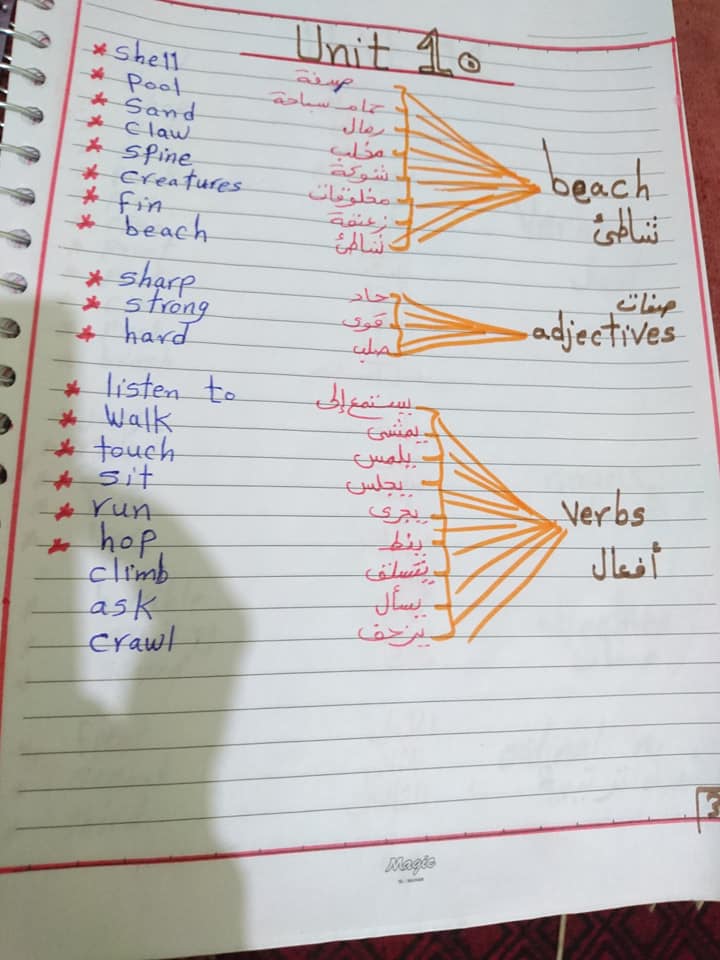 Unit 10
shell صدفة
Pool حمام سباحة
Sand رمال
Claw مخلب
Spine شوكة
Creatures مخلوقات
fin زعنفة
beach شاطئ
beach
شاطئ
sharp حاد
strong قوى
hard صلب
صفات
adjectives
listen to يستمع إلى
Walk يمشى
touch يلمس
sit يجلس
run يجرى
hop ينط
climb يتسلق
ask يسأل
crawl يزحف
verbs
أفعال
3
Magic